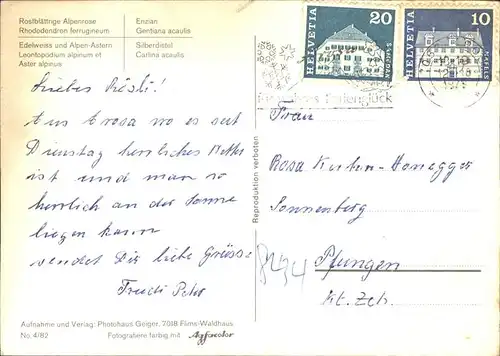 Rostblättrige Alpenrose
Rhododendron ferrugineum
Enzian
Gentiana acaulis
Edelweiss und Alpen-Astern
Leontopodium alpinum et
Aster alpinus
Silberdistel
Carlina acaulis
HELVETIA 20
HELVETIA 10
Liebes Rösli!
Aus Arosa wo es seit
Dienstag herrliches Wetter
ist und man so
herrlich an der Sonne
liegen kann
sendet Dir liebe Grüsse
Trudi Peter
Frau
Rosa Kuhn-Honegger
Sonnenberg
8424
Pfungen
Kt. Zch.
Reproduktion verboten
Aufnahme und Verlag: Photohaus Geiger, 7018 Flims-Waldhaus
No. 4/82
Fotografiere farbig mit Agfacolor